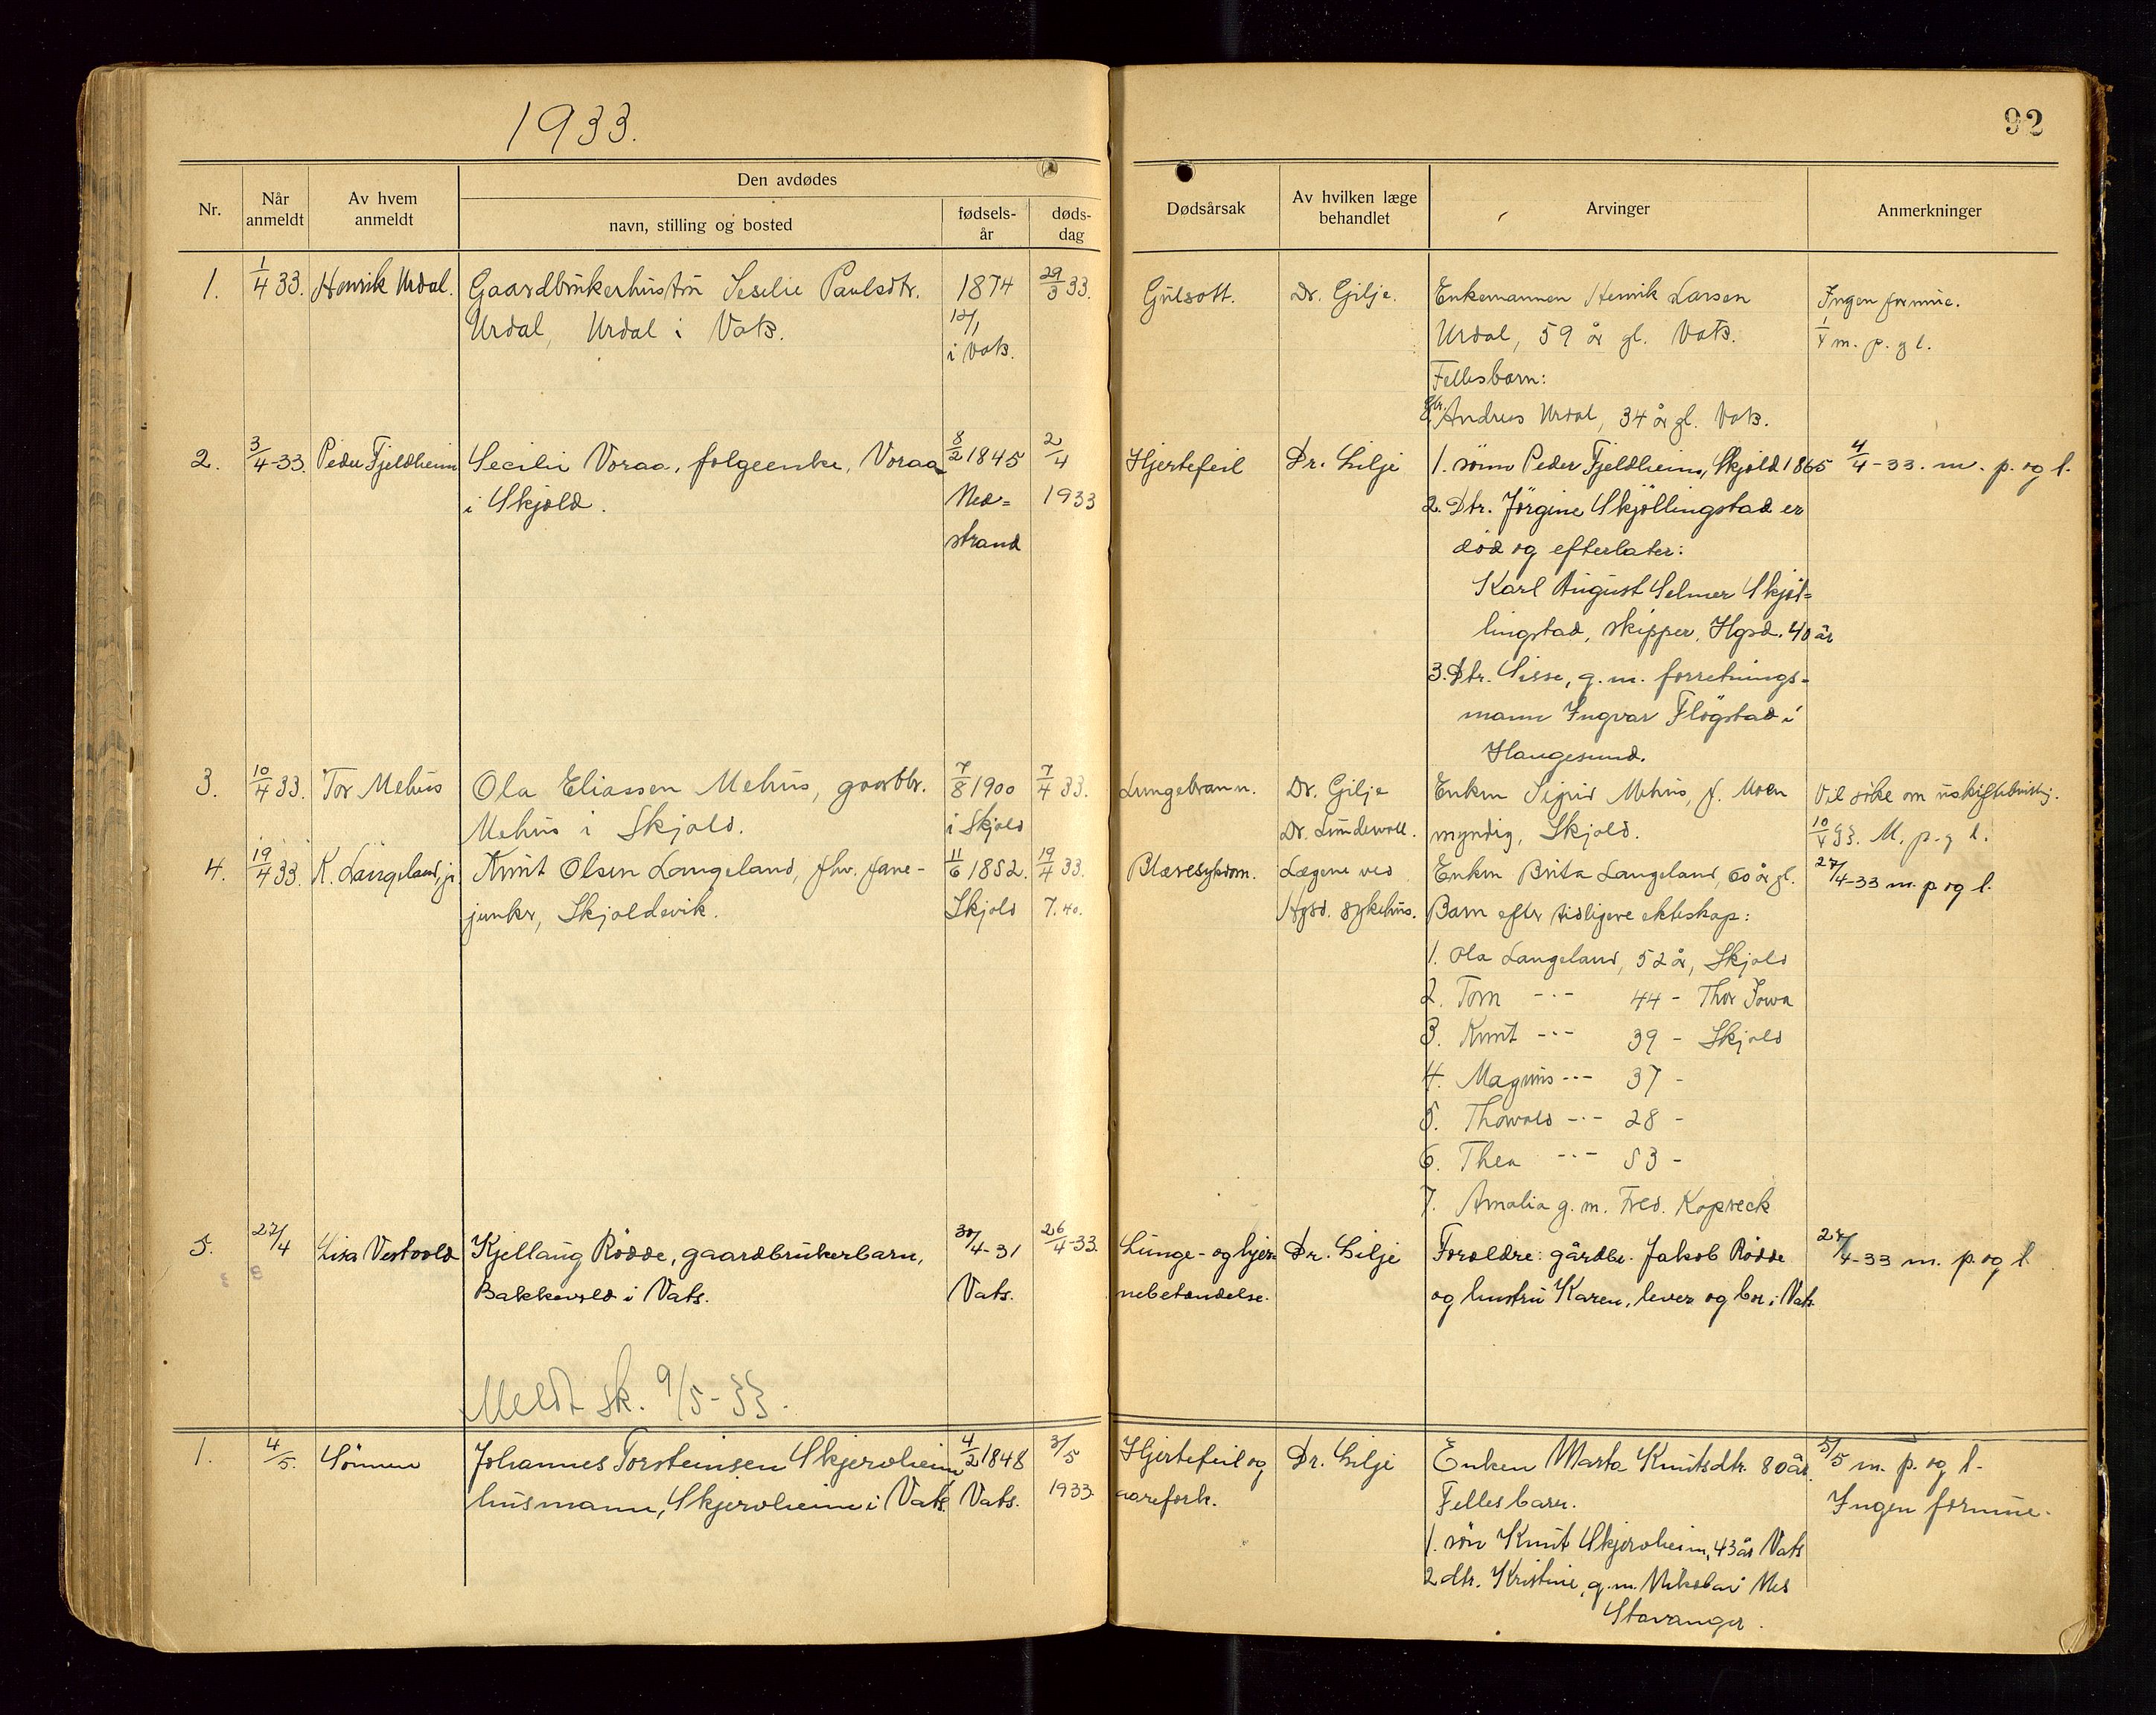 1933.
92
Nr.
Når anmeldt
Av hvem anmeldt
Den avdødes
navn, stilling og bosted
fødsels-år
døds-dag
Dødsårsak
Av hvilken læge behandlet
Arvinger
Anmerkninger
1. 1/4 33. Henrik Urdal. Gaardbrukerhustru Seselie Paulsdtr. 1874 29/3 33. Gulsott. Dr. Gilje. Enkemannen Henrik Larsen Ingen formue.
Urdal, Urdal i Vats. 12/1 Urdal, 59 år gl. Vats. 1/4 m. p. og l.
i Vats.
Fellesbarn:
Andreas Urdal, 34 år gl. Vats.
2. 3/4-33. Peder Fjeldheim Secilie Voraa, folgeenke, Voraa 8/2 1845 2/4 Hjertefeil Dr. Gilje 1. sönn Peder Fjeldheim, Skjold 1865 4/4-33. m. p. og l.
i Skjold. Ned= 1933 2. Dtr. Jörgine Skjöllingstad er
strand död og efterlater:
Karl August Selmer Skjöl=
lingstad, skipper, Hgsd. 40 år
3. Dtr. Sisse, g. m. forretnings-
mann Ingvar Flögstad i
Haugesund.
3. 10/4 33. Tor Mehus Ola Eliassen Mehus, gaardbr. 7/8 1900 7/4 33. Lungebrann. Dr. Gilje Enken Sigrid Mehus, f. Moen Vil söke om uskiftebevilg.
Mehus i Skjold. i Skjold Dr. Lundevall. myndig, Skjold. 10/4 33. M. p. og l.
4. 19/4 33. K. Langeland, jr. Knut Olsen Langeland, fhv. fane- 11/6 1852. 19/4 33. Blæresykdom. Lægene ved Enken Brita Langeland, 60 år gl. 27/4-33 m. p og l.
junker, Skjoldevik. Skjold 7.40. Hgsd. sykehus. Barn efter tidligere ekteskap:
1. Ola Langeland, 52 år, Skjold
2. Torn -"- 44 - Thor Iowa
3. Knut -"- 39 - Skjold
4. Magnus -"- 37 -
5. Thorvald -"- 28 -
6. Thea -"- 53 -
7. Amalia g. m. Fred. Kopreck
5. 27/4 Lisa Vestvold Kjellaug Rödde, gaardbrukerbarn, 30/4-31 26/4-33. Lunge- og hjer- Dr. Gilje Foreldre: gårdbr. Jakob Rödde 27/4-33 m. p. og l.
Bakkevold i Vats. Vats. nebetendelse. og hustru Karen, lever og bor i Vats.
Meldt sk. 9/5-33.
1. 4/5. Sönnen Johannes Torsteinsen Skjerveheim 4/2 1848 3/5 Hjertefeil og Dr. Gilje Enken Marta Knutsdtr. 80 år. 5/5 m. p. og l.
husmann, Skjerveheim i Vats. Vats. 1933. aarefork. Fellesbarn. Ingen formue.
1. sön Knut Skjerveheim, 43 år Vats
2 dtr. Kristine, g. m. Nikolai Nes
Stavanger.